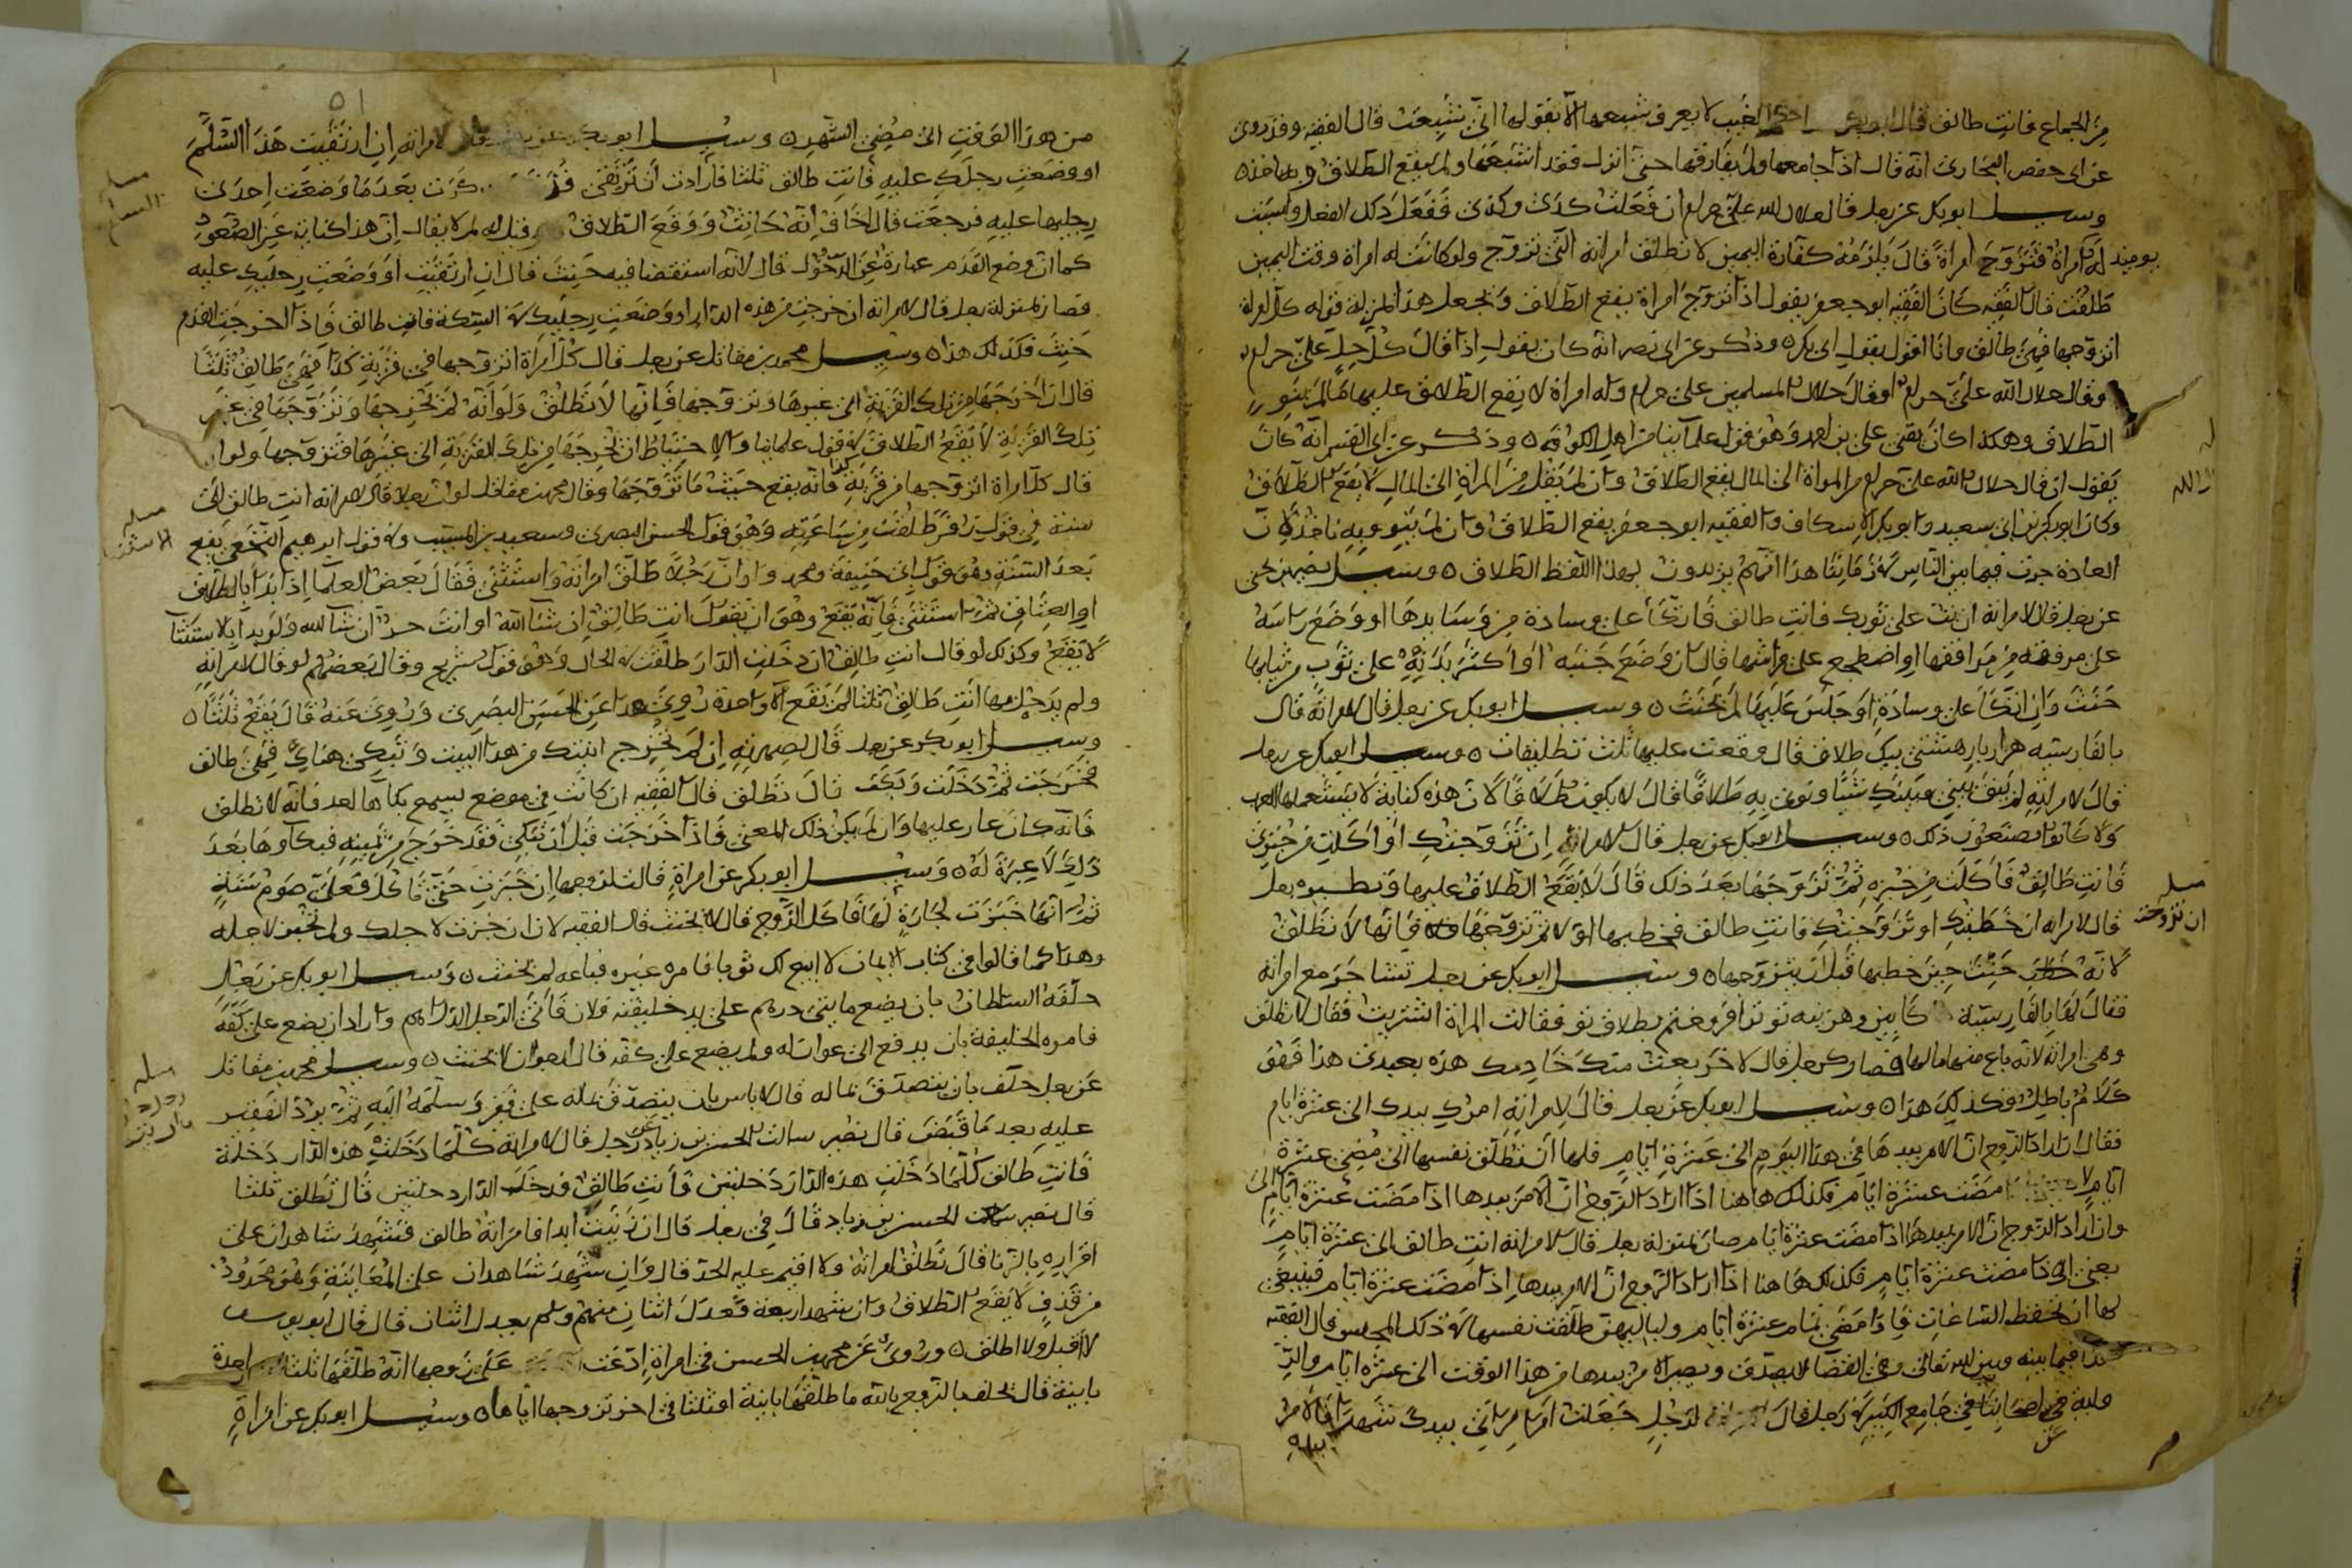 من الجماع فانت طالق قال ابو بكر لا يعرف شبعها الا بقولها اني شبعت قال الفقيه وقد روي
عن ابي حفص البخاري انه قال اذا جامعها ولم يفارقها حتى انزل فقد اشبعها ولم يقع الطلاق وبه ناخذ
وسيل ابو بكر عن رجل قال حلال الله علي حرام ان فعلت كذى وكذى ففعل ذلك الفعل وليست
له يوميذ امراة فتزوج امراة قال يلزمه كفارة اليمين لا تطلق امراته التي تزوج ولو كانت له امراة وقت اليمين
طلقت قال الفقيه كان الفقيه ابو جعفر يقول اذا تزوج امراة يقع الطلاق ونجعل هذا بمنزلة قوله كل امراة
اتزوجها فهي طالق وانا اقول بقول ابي بكر وذكر عن ابي نصر انه كان يقول اذا قال كل حل علي حرام
وقال حلال الله علي حرام او قال حلال المسلمين علي حرام وله امراة لا يقع الطلاق عليها ما لم ينو
الطلاق وهكذا كان يفتي علي بن احمد وهو قول علمائنا من اهل الكوفة وذكر عن ابي القسم انه كان
يقول ان قال حلال الله علي حرام من المراة الى المال يقع الطلاق وان لم يقل من المراة الى المال لا يقع الطلاق
وكان ابو بكر بن ابي سعيد وابو بكر الاسكاف والفقيه ابو جعفر يقع الطلاق وان لم ينو وبه ناخذ لان
العادة جرت فيما بين الناس في زماننا هذا انهم يريدون بهذا اللفظ الطلاق وسيل نصير بن يحيى
عن رجل قال لامراته ان نمت على ثوبك فانت طالق فاتكأ على وسادة من وسايدها او وضع راسه
على مرفقة من مرافقها او اضطجع على فراشها قال ان وضع جنبه او اكثر بدنه على ثوب من ثيابها
حنث وان اتكأ على وسادة او جلس عليها لم يحنث وسيل ابو بكر عن رجل قال لامراته قال
بالفارسية هزار بار هشتي بيك طلاق قال وقعت عليها ثلث تطليقات وسيل ابو بكر عن رجل
قال لامراته لم يبق بيني وبينك شيئا ونوى به طلاقا قال لا يكون طلاقا لان هذه كناية لا يستعملها العرب
ولا كانوا يصنعون ذلك وسيل ابو بكر عن رجل قال لامراة ان تزوجتك او اكلت من خبزي
فانت طالق فاكلت من خبزه ثم تزوجها بعد ذلك قال لا يقع الطلاق عليها ونظيره رجل
قال لامراة ان خطبتك او تزوجتك فانت طالق فخطبها اولا ثم تزوجها فانها لا تطلق
لانه حنث حين خطبها قبل ان يتزوجها وسيل ابو بكر عن رجل تشاجر مع امراته
فقال لها بالفارسية كابين وهزينه تو تو افروختم بطلاق تو فقالت المراة اشتريت فقال لا تطلق
وهي امراته لانه باع منها مالها فصار كرجل قال لاخر بعت منك خادمك هذه بعبدي هذا فهو
كلام باطل وكذلك هذا وسيل ابو بكر عن رجل قال لامراته امرك بيدك الى عشرة ايام
فقال ان اراد الزوج ان الامر بيدها في هذا اليوم الى عشرة ايام فلها ان تطلق نفسها الى مضي عشرة
ايام مضت عشرة ايام فكذلك هاهنا اذا اراد الزوج ان الامر بيدها اذا مضت عشرة ايام
وان اراد الزوج ان الامر بيدها اذا مضت عشرة ايام صار بمنزلة رجل قال لامراته انت طالق الى عشرة ايام
يعني اذا مضت عشرة ايام فكذلك هاهنا اذا اراد الزوج ان الامر بيدها اذا مضت عشرة ايام فينبغي
لها ان تحفظ الساعات فاذا مضى تمام عشرة ايام ولياليهن طلقت نفسها في ذلك المجلس قال الفقيه
هذا فيما بينه وبين الله تعالى وفي القضا لا يصدق ويصير الامر بيدها من هذا الوقت الى عشرة ايام
في الجامع الكبير في رجل قال لرجل جعلت امر امراتي بيدك شهرا فالامر
بيده
من هذا الوقت الى مضي الشهر وسيل ابو بكر عن رجل قال لامراته ان ارتقيت هذا السلم
او وضعت رجلك عليه فانت طالق ثلثا فارادت ان ترتقي بعدما وضعت احدى
رجليها عليه فرجعت قال اخاف انه حانث ووقع الطلاق وقيل له لم لا يقال ان هذا كناية عن الصعود
كما ان وضع القدم عبارة عن الدخول قال لانه استقصا فيه حيث قال ان ارتقيت او وضعت رجليك عليه
فصار بمنزلة رجل قال لامراته ان خرجت من هذه الدار او وضعت رجليك في السكة فانت طالق فاذا اخرجت القدم
حنث فكذلك هذا وسيل محمد بن مقاتل عن رجل قال كل امراة اتزوجها في قرية كذا فهي طالق ثلثا
قال ان اخرجها من تلك القرية الى غيرها وتزوجها فانها لا تطلق ولو انه لم يخرجها وتزوجها في غير
تلك القرية لا يقع الطلاق في قول علمائنا والاحتياط ان يخرجها من تلك القرية الى غيرها فتزوجها ولو
قال كل امراة اتزوجها من قرية كذا فانه يقع حيث ما تزوجها وقال محمد بن مقاتل لو ان رجلا قال لامراته انت طالق الى
سنة في قول زفر طلقت من ساعته وهو قول الحسن البصري وسعيد بن المسيب وفي قول ابرهيم النخعي يقع
بعد السنة وهو قول ابي حنيفة ومحمد ولو ان رجلا طلق امراته واستثنى فقال بعض العلما اذا بدا بالطلاق
او العتاق ثم استثنى فانه يقع وهو ان يقول انت طالق ان شا الله او انت حر ان شا الله ولو بدا بالاستثنا
لا يقع وكذلك لو قال انت طالق ان دخلت الدار طلقت في الحال وهو قول شريح وقال بعضهم لو قال لامراته
ولم يدخل بها انت طالق ثلثا لم تقع الا واحدة روي هذا عن الحسن البصري وروي عنه قال يقع ثلثا
وسيل ابو بكر عن رجل قال لصهرته ان لم تخرج ابنتك من هذا البيت وتبكي هناك فهي طالق
فخرجت ثم دخلت وبكت قال تطلق قال الفقيه ان كانت في موضع يسمع بكآها احد فانه لا تطلق
فانه كان عار عليها وان لم يكن ذلك المعنى فاذا خرجت قبل ان تبكي فقد خرج من يمينه فبكآوها بعد
ذلك لا عبرة له وسيل ابو بكر عن امراة قالت لزوجها ان خبزت حتى تاكل فعلي صوم سنة
ثم انها خبزت لجارة لها فاكل الزوج قال لا يحنث قال الفقيه لان ان خبزت لاجلك ولم تخبز لاجله
وهذا كما قالوا في كتاب الايمان لا ابيع لك ثوبا فامره غيره فباعه لم يحنث وسيل ابو بكر عن رجل
حلفه السلطان بان يضع مايتي درهم على يد خليفته فلان فاتى الرجل الدراهم واراد ان يضع على كفه
فامره الخليفة بان يدفع الى عوان له ولم يضع على كفه قال ارجوان لا يحنث وسيل محمد بن مقاتل
عن رجل حلف بان يتصدق بماله قال لا باس بان يتصدق بماله على فقير وسلمه اليه ثم يرد الفقير
عليه بعد ما قبض قال نصير سالت الحسن بن زياد عن رجل قال لامراته كلما دخلت هذه الدار دخلة
فانت طالق كلما دخلت هذه الدار دخلتين فانت طالق فدخلت الدار دخلتين قال تطلق ثلثا
قال نصير سالت الحسن بن زياد قال في رجل قال ان زنيت ابدا فامراته طالق فشهد شاهدان على
اقراره بالزنا قال تطلق امراته ولا اقيم عليه الحد قال وان شهد شاهدان على المعاينة وهو محدود
من قذف لا يقع الطلاق وان شهد اربعة فعدل اثنان منهم ولم يعدل اثنان قال قال ابو يوسف
لا اقبل ولا اطلق وروي عن محمد بن الحسن في امراة ادعت على زوجها انه طلقها ثلثا واحدة
باينة قال يحلف الزوج بالله ما طلقها باينة او ثلثا في اخر تزوجها اياها وسيل ابو بكر عن امراة
مسلة
السلم
مسلة
الاستثنا
مسلة
مسلة
ان تزوجت
٥١